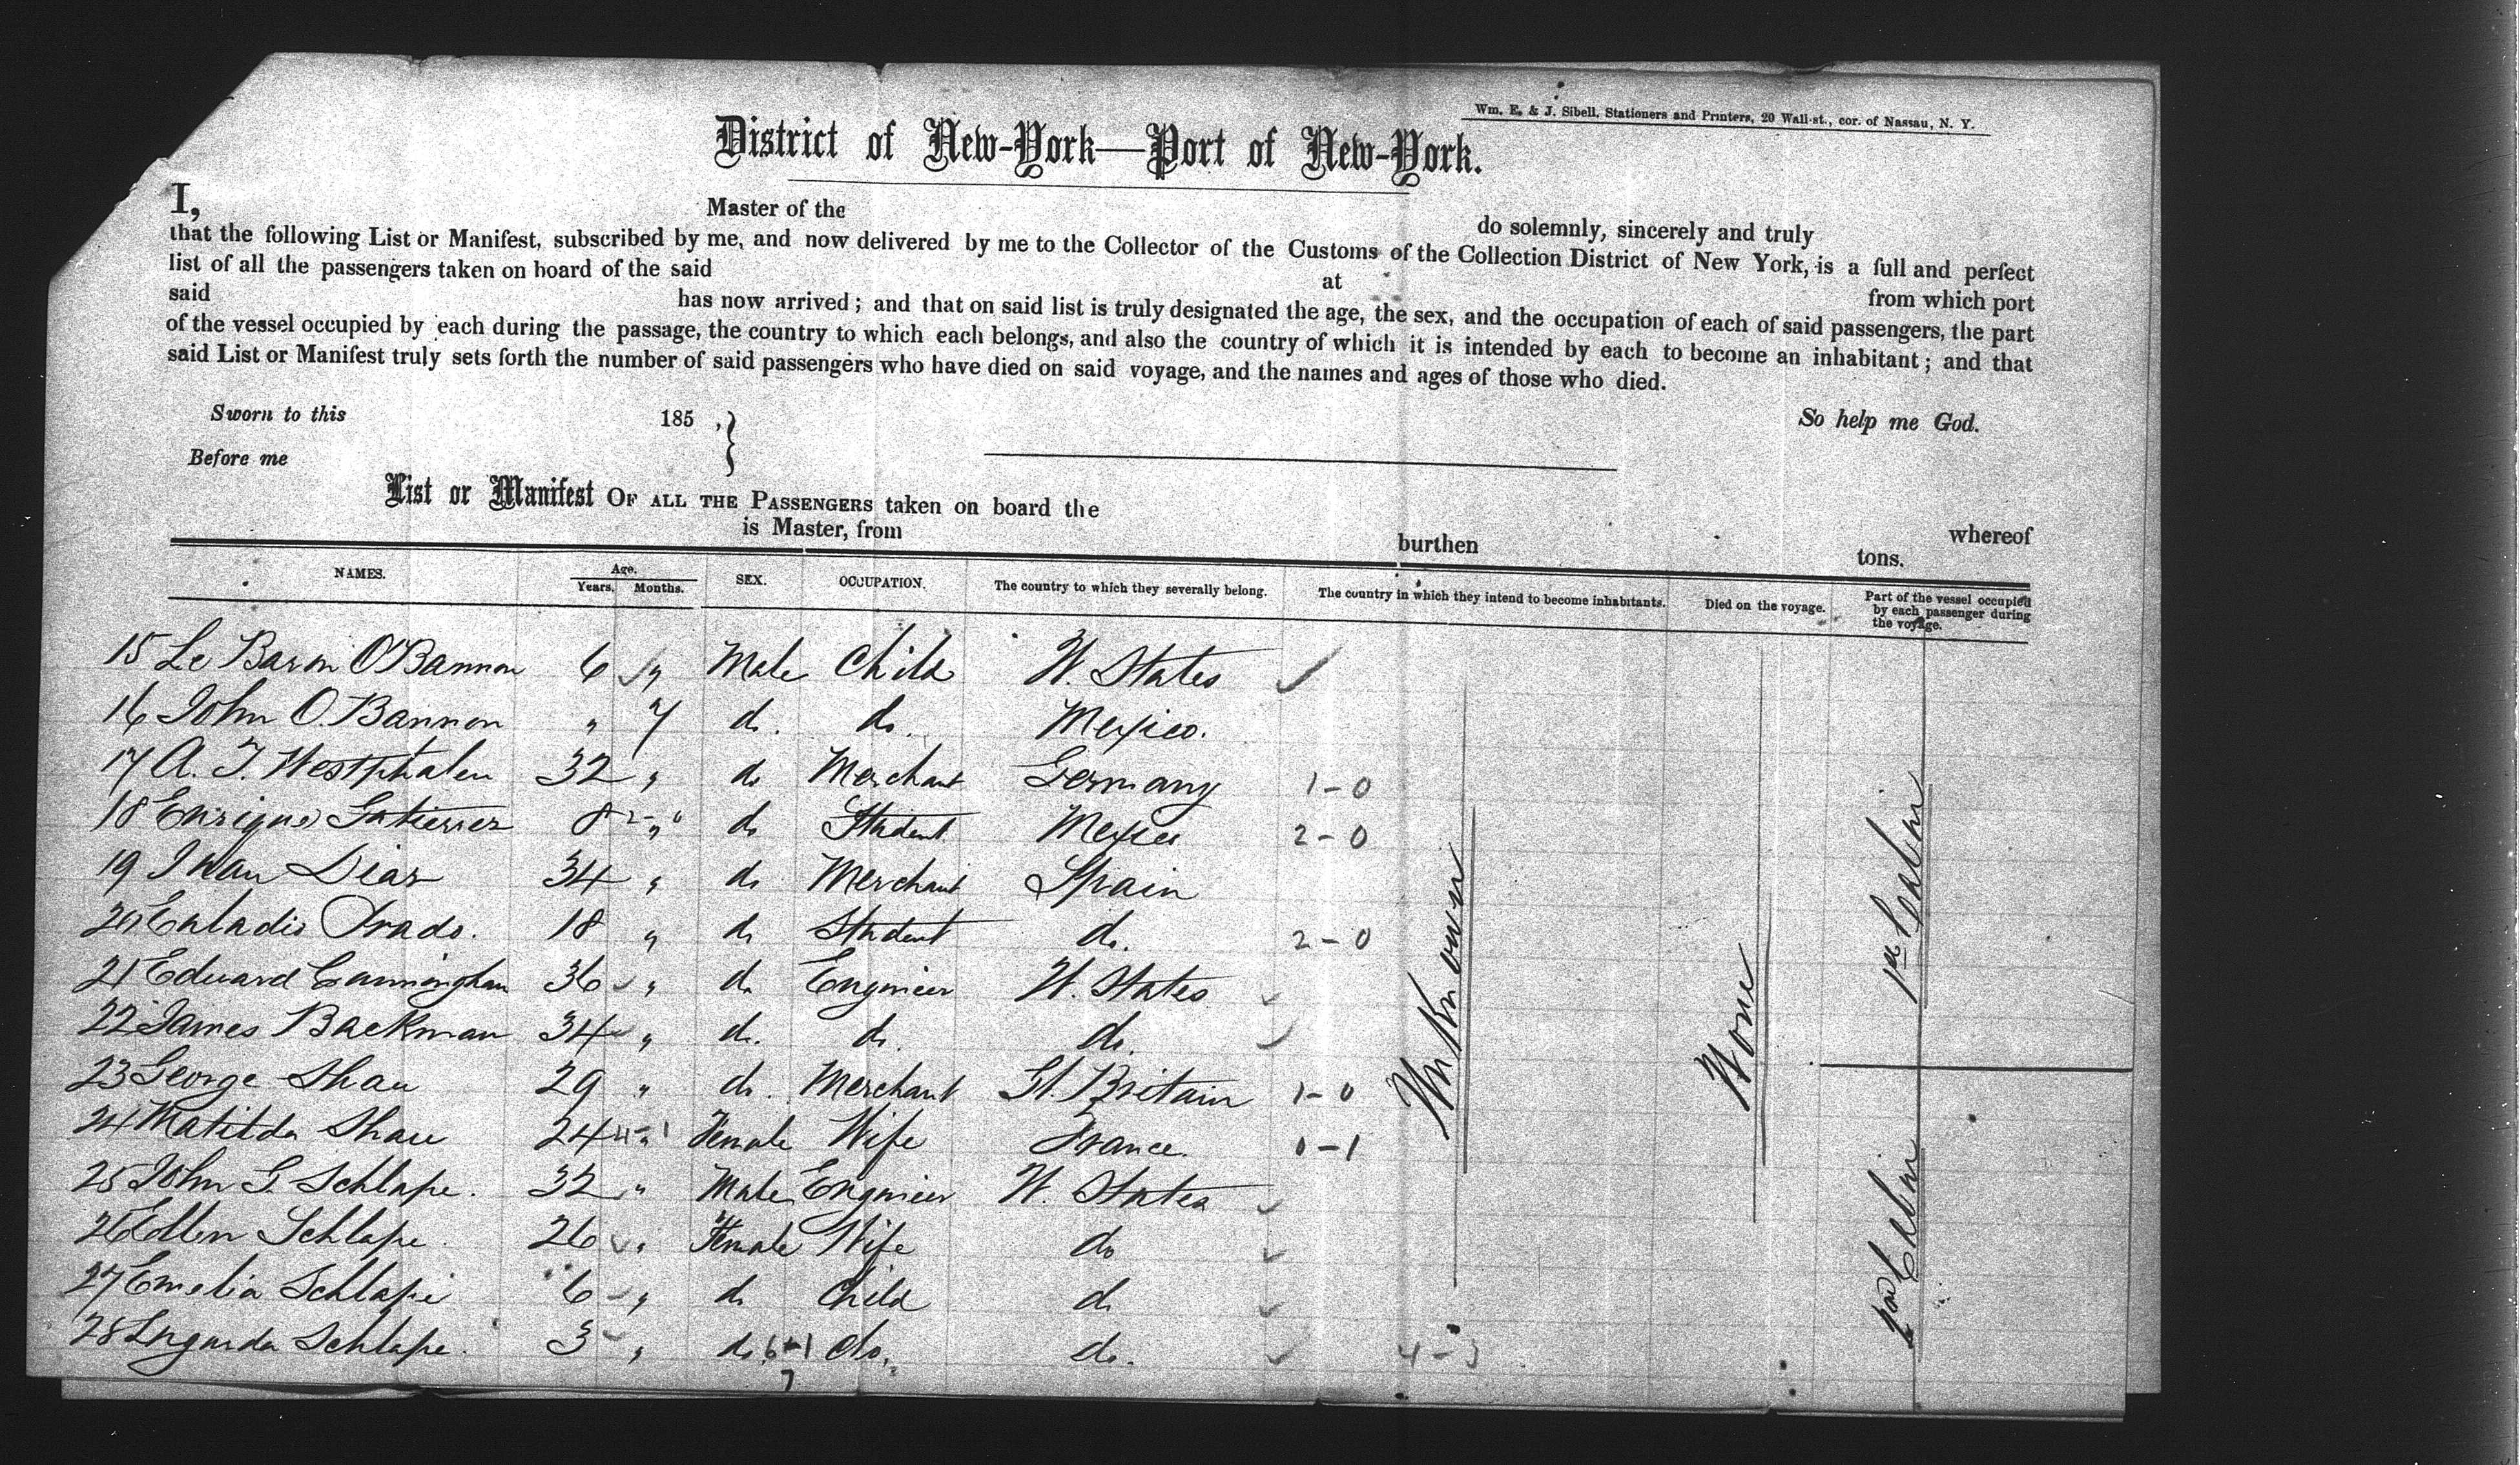 Wm. E. & J. Sibell, Stationers and Printers, 20 Wall-st., cor. of Nassau, N. Y.
District of New-York—Port of New-York.
I, Master of the do solemnly, sincerely and truly
that the following List or Manifest, subscribed by me, and now delivered by me to the Collector of the Customs of the Collection District of New York, is a full and perfect
list of all the passengers taken on board of the said at from which port
said has now arrived; and that on said list is truly designated the age, the sex, and the occupation of each of said passengers, the part
of the vessel occupied by each during the passage, the country to which each belongs, and also the country of which it is intended by each to become an inhabitant; and that
said List or Manifest truly sets forth the number of said passengers who have died on said voyage, and the names and ages of those who died.
Sworn to this 185 , So help me God.
Before me
List or Manifest OF ALL THE PASSENGERS taken on board the whereof
is Master, from burthen tons.
NAMES. Age. Years. Months. SEX. OCCUPATION. The country to which they severally belong. The country in which they intend to become inhabitants. Died on the voyage. Part of the vessel occupied by each passenger during the voyage.
15 Le Baron O'Bannon 6 " Male Child U. States
16 John O'Bannon " 7 do. do. Mexico.
17 A. F. Westphalen 32 " do Merchant Germany 1-0
18 Enrique Gutierrez 8 " do Student Mexico 2-0
19 Juan Diaz 34 " do Merchant Spain
20 Euladio Prado. 18 " do Student do. 2-0
21 Edward Cunningham 36 " do Engineer U. States
22 James Backman 34 " do. do. do.
23 George Shaw 29 " do. Merchant Gt. Britain 1-0
24 Matilda Shaw 24 " Female Wife France. 0-1
25 John G. Schlape. 32 " Male Engineer U. States
26 Ellen Schlape. 26 " Female Wife do
27 Emelia Schlape 6 " do Child do
28 Schlape. 3 " do. 6-1 do. do. 4-3
7
Unknown
None
1st Cabin
2nd Cabin